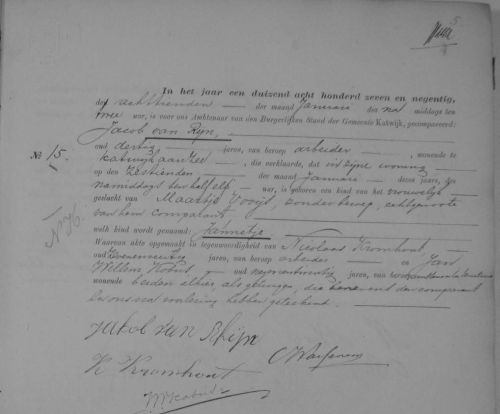 In het jaar een duizend acht honderd zeven en negentig,
den achttienden der maand Januari des na middags ten
twee ure, is voor ons Ambtenaar van den Burgerlijken Stand der Gemeente Katwijk, gecompareerd:
Jacob van Rijn,
No 15. oud dertig jaren, van beroep arbeider, wonende te
Katwijk aan Zee, die verklaarde, dat in zijne woning
op den zestienden der maand Januari dezes jaars, des
namiddags ten half elf ure, is geboren een kind van het vrouwelijk
geslacht van Maartje Ooijt, zonder beroep, echtgenoote
van hem comparant
welk kind wordt genaamd: Jannetje
Waarvan akte opgemaakt in tegenwoordigheid van Nicolaas Kromhout
oud jaren, van beroep arbeider en Jan
Willem oud jaren, van beroep
wonende beiden alhier, als getuigen, die benevens den comparant
na voorlezing hebben geteekend.
NH.
Jakob van Rhijn
K Kromhout